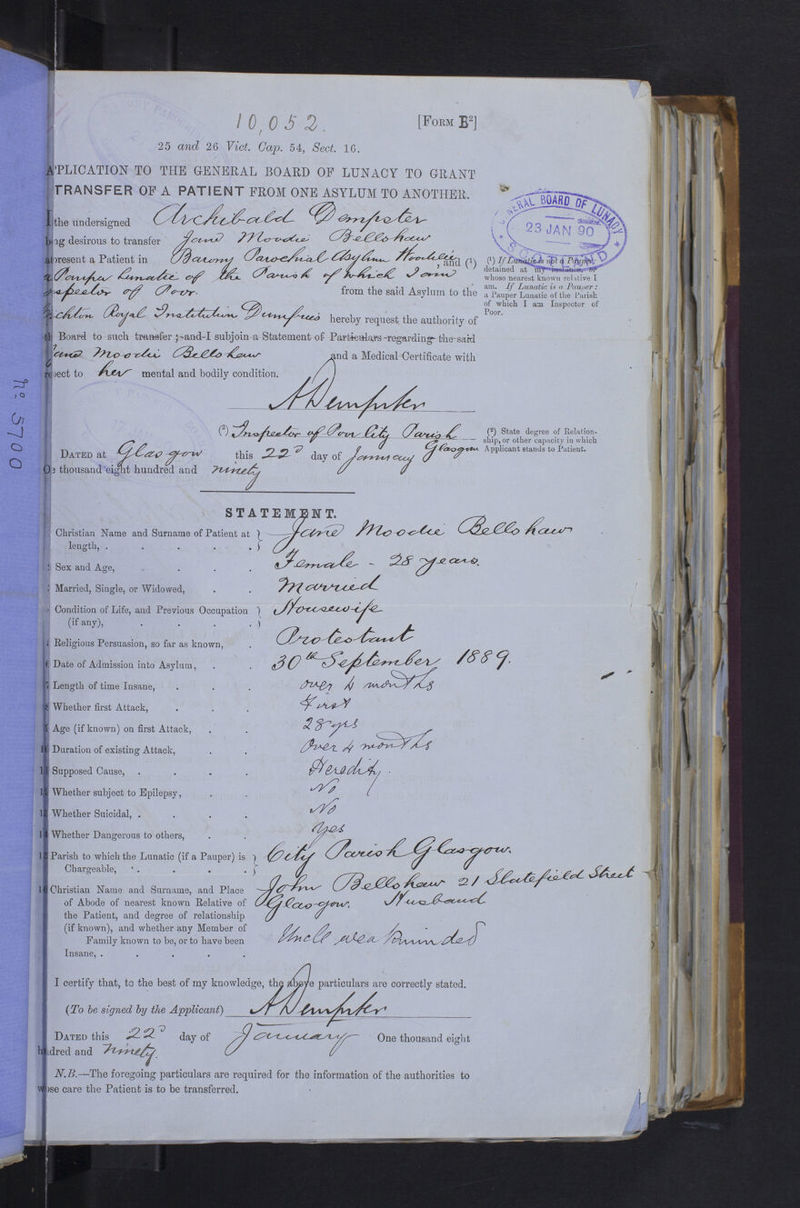 10,052.
[FORM B²]
25 and 26 Vict. Cap. 54, Sect. 16.
APPLICATION TO THE GENERAL BOARD OF LUNACY TO GRANT
TRANSFER OF A PATIENT FROM ONE ASYLUM TO ANOTHER.
GENERAL BOARD OF LUNACY
23 JAN 90
SCOTLAND
I the undersigned Archibald Dempster
being desirous to transfer Jane Moodie Bellshaw
at present a Patient in Barony Parochial Asylum Woodilee, and (¹)
a Pauper Lunatic of the Parish of which I am
Inspector of Poor from the said Asylum to the
Crichton Royal Institution Dumfries hereby request the authority of
the Board to such transfer; and I subjoin a Statement of Particulars regarding the said
Jane Moodie Bellshaw and a Medical Certificate with
respect to her mental and bodily condition.
(¹) If Lunatic is not a Pauper,
detained at my instance, or
whose nearest known relative I
am. If Lunatic is a Pauper:
a Pauper Lunatic of the Parish
of which I am Inspector of
Poor.
ADempster
(²) Inspector of Poor City Parish
Glasgow
(²) State degree of Relation-
ship, or other capacity in which
Applicant stands to Patient.
DATED at Glasgow this 22ᵈ day of January
One thousand eight hundred and ninety
No. 5700
STATEMENT.
Christian Name and Surname of Patient at length, . Jane Moodie Bellshaw
Sex and Age, Female - 28 years.
Married, Single, or Widowed, Married
Condition of Life, and Previous Occupation (if any), Housewife
Religious Persuasion, so far as known, Protestant
Date of Admission into Asylum, 30th September 1889.
Length of time Insane, over 4 months
Whether first Attack, First
Age (if known) on first Attack, 28 yrs
Duration of existing Attack, Over 4 months
Supposed Cause, Heredity.
Whether subject to Epilepsy, No
Whether Suicidal, No
Whether Dangerous to others, Yes
Parish to which the Lunatic (if a Pauper) is Chargeable, City Parish Glasgow.
Christian Name and Surname, and Place John Bellshaw 21 Slatefield Street
of Abode of nearest known Relative of Glasgow. Husband
the Patient, and degree of relationship
(if known), and whether any Member of
Family known to be, or to have been Uncle weak minded
Insane, .
I certify that, to the best of my knowledge, the above particulars are correctly stated.
(To be signed by the Applicant) ADempster
DATED this 22ᵈ day of January One thousand eight
hundred and ninety.
N.B.—The foregoing particulars are required for the information of the authorities to
whose care the Patient is to be transferred.